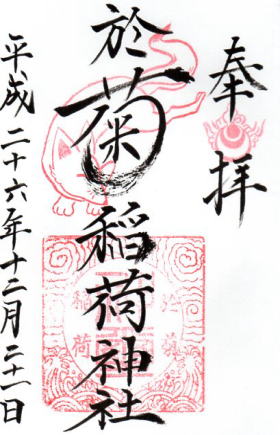 奉拝
於菊稲荷神社
平成二十六年十二月二十一日